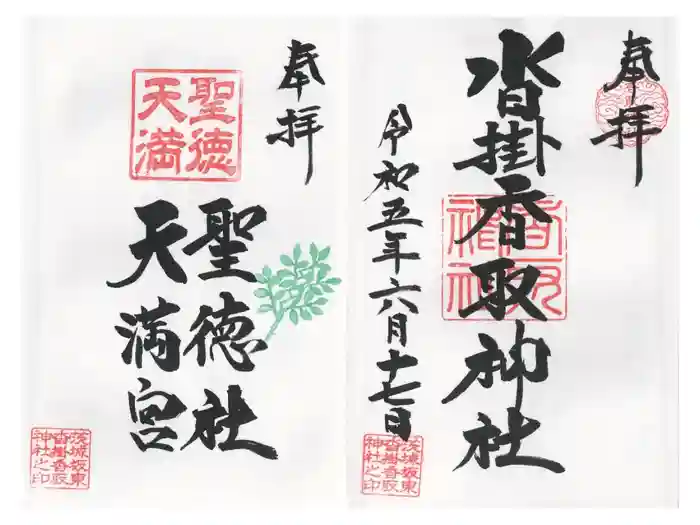 奉拝
沓掛香取神社
令和五年六月十七日
茨城坂東
沓掛香取
神社之印
奉拝
聖徳
天満
聖徳社
天満宮
茨城坂東
沓掛香取
神社之印